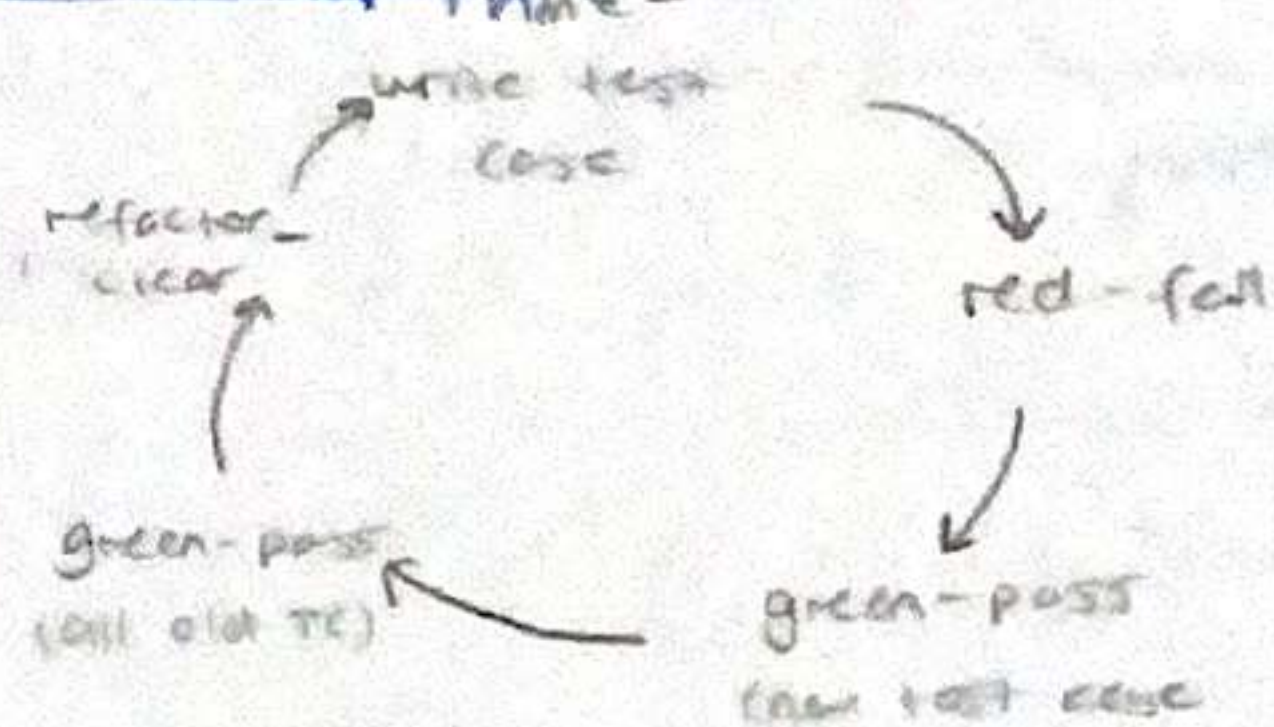 write test
case
red - fail
green - pass
(new test case
green - pass
(all old TC)
refactor -
clear